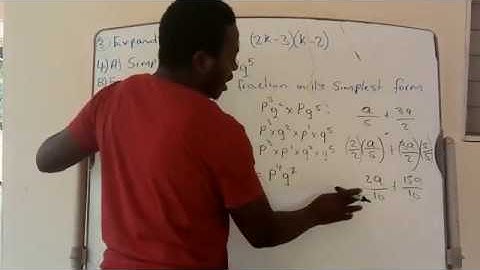 3) Expand (2k-3)(k-2)
4) A) Simp g⁵
B) E fraction in its Simplest form
P³g² × Pg⁵: a/5 + 3a/2
P³×g²×P¹×g⁵
P³×P¹×g²×g⁵ (2/2)(a/5) + (3a/2)(5/5)
= P⁴g⁷
2a/10 + 15a/10